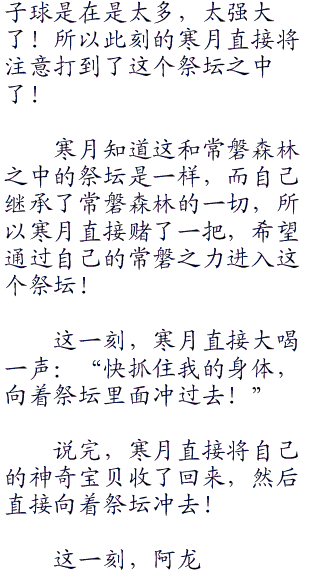 子球是在是太多，太强大
了！所以此刻的寒月直接将
注意打到了这个祭坛之中
了！
寒月知道这和常磐森林
之中的祭坛是一样，而自己
继承了常磐森林的一切，所
以寒月直接赌了一把，希望
通过自己的常磐之力进入这
个祭坛！
这一刻，寒月直接大喝
一声：“快抓住我的身体，
向着祭坛里面冲过去！”
说完，寒月直接将自己
的神奇宝贝收了回来，然后
直接向着祭坛冲去！
这一刻，阿龙